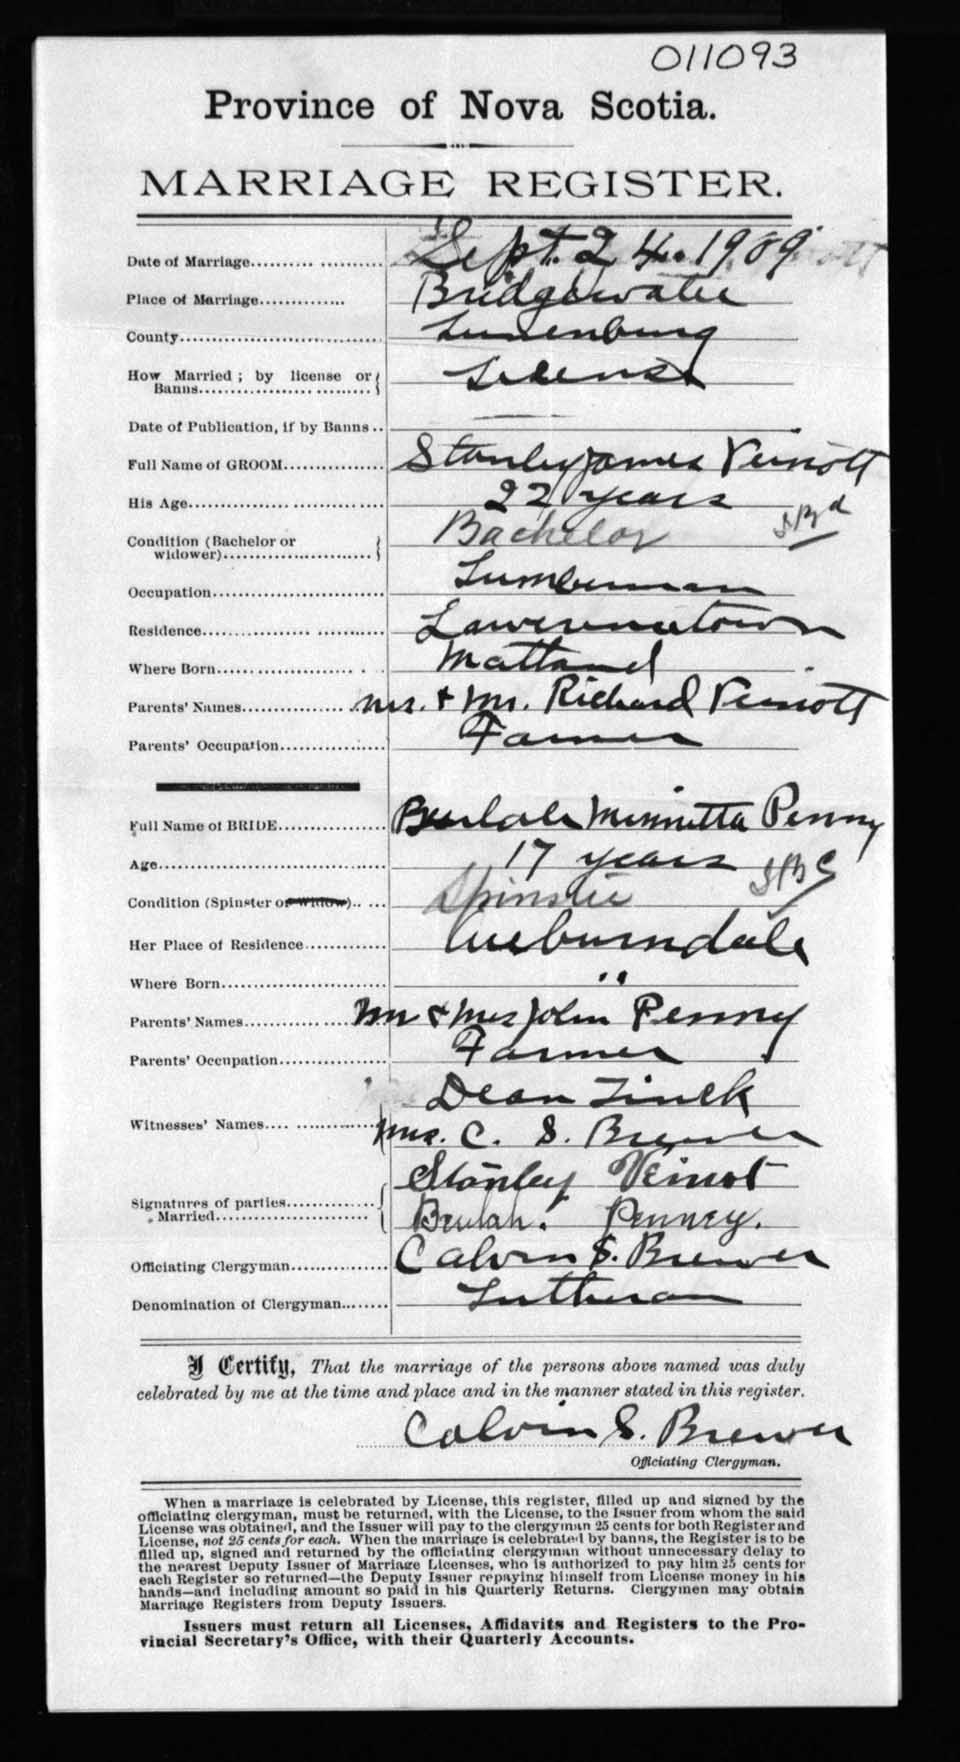 011093
Province of Nova Scotia.
MARRIAGE REGISTER.
Date of Marriage Sept. 24. 1909
Place of Marriage Bridgewater
County Lunenburg
How Married ; by license or Banns License
Date of Publication, if by Banns
Full Name of GROOM Stanley James Veinott
His Age 22 years
Condition (Bachelor or widower) Bachelor
Occupation Lumberman
Residence Lawrencetown
Where Born Maitland
Parents' Names Mr. & Mrs. Richard Veinott
Parents' Occupation Farmer
Full Name of BRIDE Beulah Minnetta Penny
Age 17 years
Condition (Spinster or widow) Spinster
Her Place of Residence Auburndale
Where Born "
Parents' Names Mr & Mrs John Penny
Parents' Occupation Farmer
Dean Zinck
Witnesses' Names
Mrs. C. S. Brewer
Stanley Veinot
Signatures of parties Married
Beulah. Penney.
Officiating Clergyman Calvin S. Brewer
Denomination of Clergyman Lutheran
I Certify, That the marriage of the persons above named was duly
celebrated by me at the time and place and in the manner stated in this register.
Calvin S. Brewer
Officiating Clergyman.
When a marriage is celebrated by License, this register, filled up and signed by the
officiating clergyman, must be returned, with the License, to the Issuer from whom the said
License was obtained, and the Issuer will pay to the clergyman 25 cents for both Register and
License, not 25 cents for each. When the marriage is celebrated by banns, the Register is to be
filled up, signed and returned by the officiating clergyman without unnecessary delay to
the nearest Deputy Issuer of Marriage Licenses, who is authorized to pay him 25 cents for
each Register so returned—the Deputy Issuer repaying himself from License money in his
hands—and including amount so paid in his Quarterly Returns. Clergymen may obtain
Marriage Registers from Deputy Issuers.
Issuers must return all Licenses, Affidavits and Registers to the Pro-
vincial Secretary's Office, with their Quarterly Accounts.